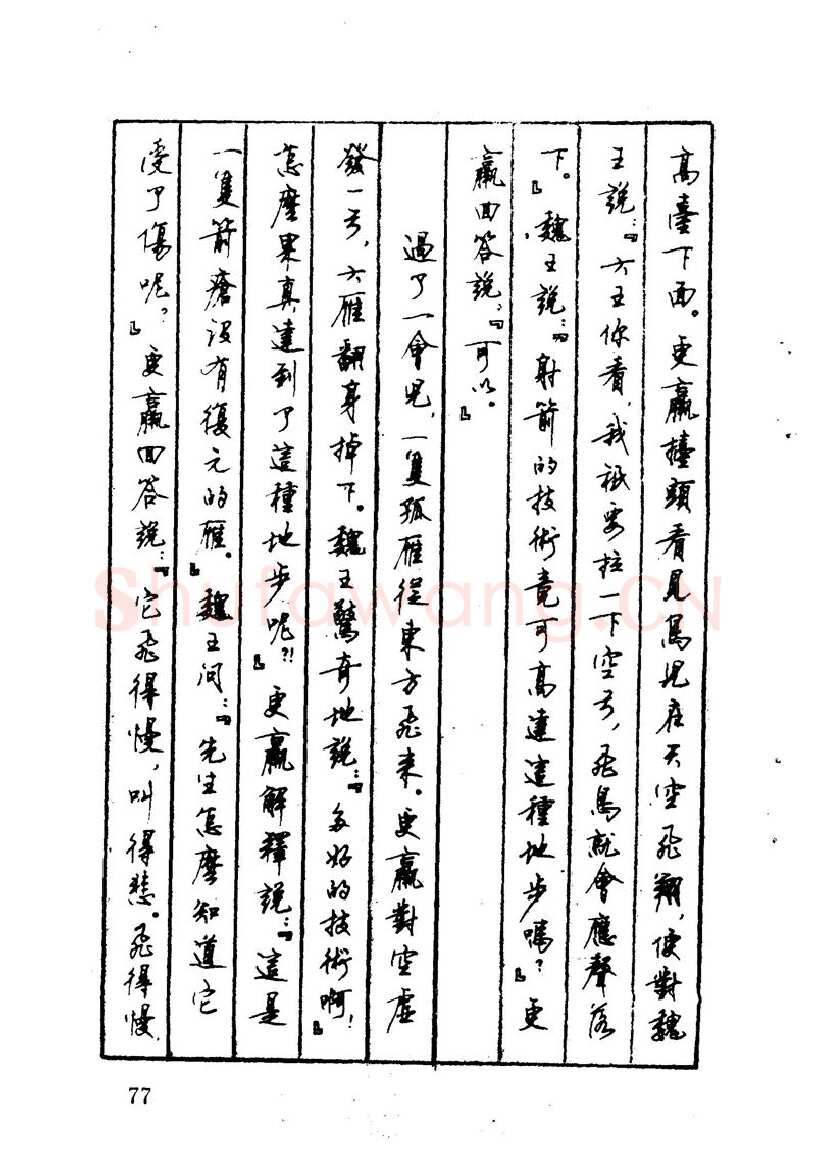 高臺下面。更羸擡頭看見鳥兒在天空飛翔，便對魏
王說：『大王你看，我祇要拉一下空弓，飛鳥就會應聲落
下。』魏王說：『射箭的技術竟可高達這種地步嗎？』更
羸回答說：『可以。』
過了一會兒，一隻孤雁從東方飛來。更羸對空虛
發一弓，大雁翻身掉下。魏王驚奇地說：『多好的技術啊！
怎麼果真達到了這種地步呢？！』更羸解釋說：『這是
一隻箭瘡沒有復元的雁。』魏王問：『先生怎麼知道它
受了傷呢？』更羸回答說：『它飛得慢，叫得悲。飛得慢，
77
Shufawang.CN